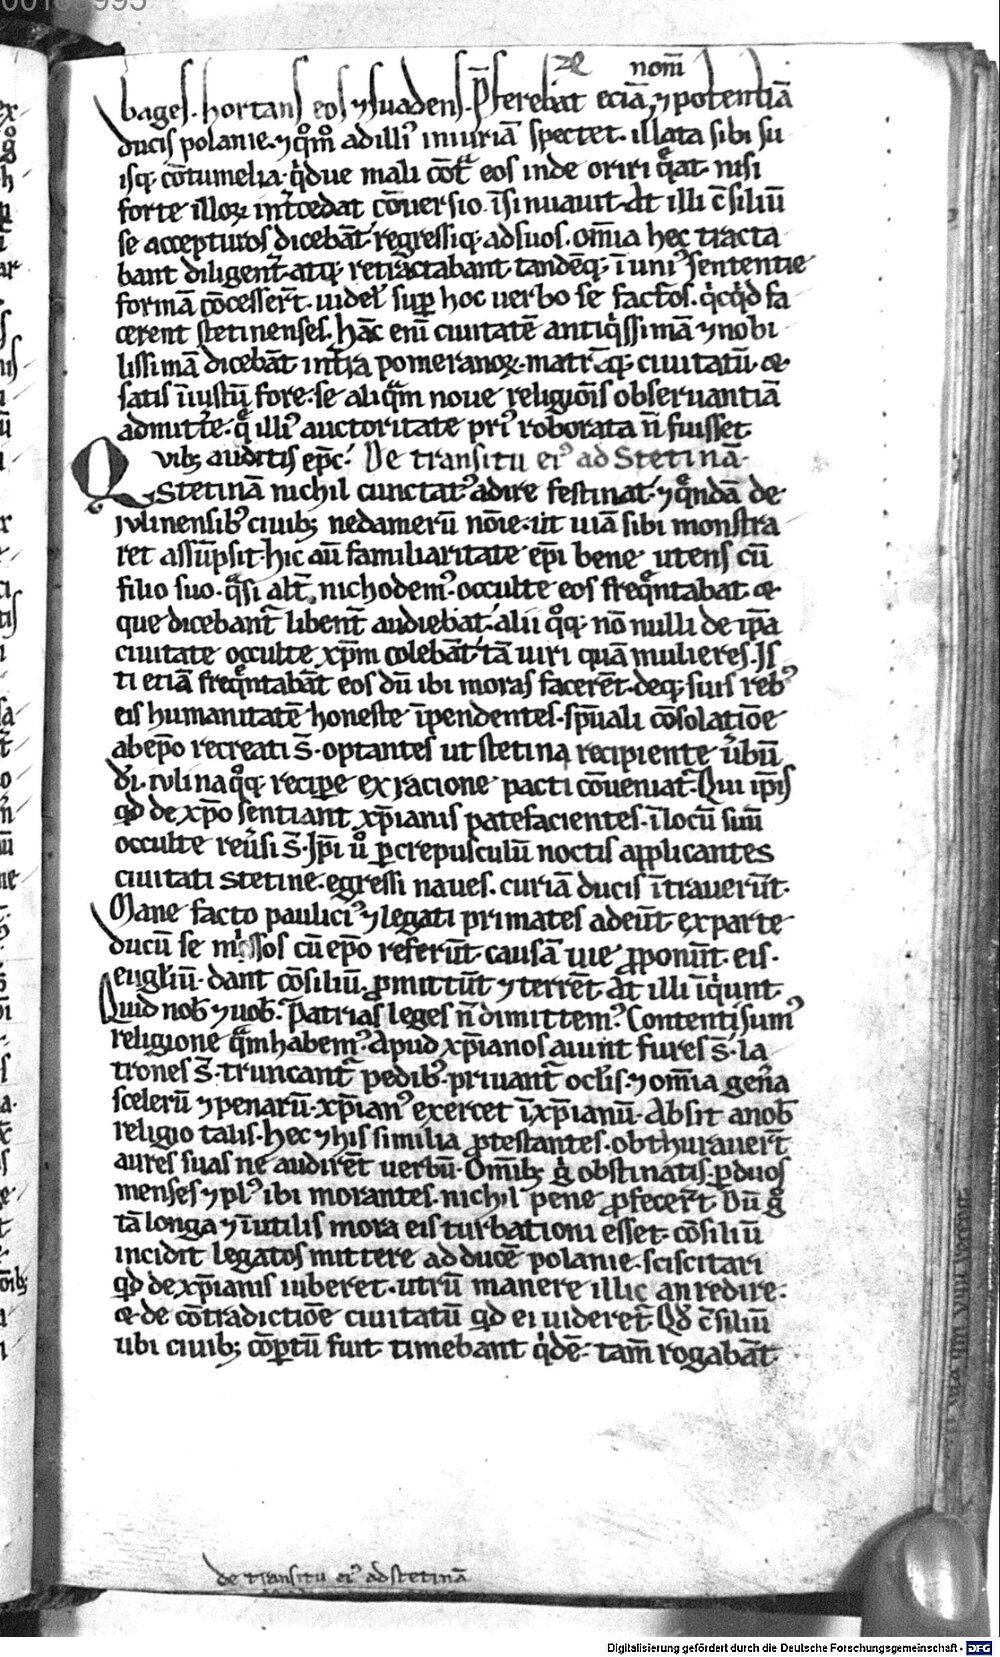 00103995
nom̄
bages. hortans eos ⁊ suadens. P̄ferebat eciā ⁊ potentiā
ducis polanie. ⁊ qͦm̄ ad illiꝰ iniuriā spectet. illata sibi su
isq; cōtumelia. qͥdue mali cōt̄ᵃ eos inde oriri qͤat. nisi
forte illoꝝ int̄cedat cōuersio. īsinuauit. At illi c̄siliū
se accepturos dicebāt regressiq; ad suos. om̄ia hec tracta
bant diligent̄ atq; retractabant. tandēq; ī uniꝰ sententie
formā cōcesser̄t. uideł. suꝑ hoc uerbo se factͦos. qͥcqͥd fa
cerent stetinenses. hāc eni̅ ciuitatē antiqͥssimā ⁊ nobi
lissimā dicebāt intra pomeranoꝝ. matr̄ēq; ciuitatū. &
satis iniustū fore. se aliqᵃm noue religiōis obseruantiā
admitt̄e. q̄ illiꝰ auctoritate priꝰ roborata n̄ fuisset.
Qvibꝫ auditis ep̄c. De transitu eiꝰ ad Stetinā.
Stetinā nichil cunctatꝰ adire festinat. ⁊ qͤndā de
jvlinensibꝰ ciuibꝫ nedamerū nōie. ut uiā sibi monstra
ret assūpsit. hic aū familiaritate ep̄i bene utens cū
filio suo. qᵃsi alt̄. nichodemꝰ. occulte eos freqͤntabat. &
que dicebant̄ libent̄ audiebat. alii qͦq; nō nulli de ip̄a
ciuitate occulte xp̄m colebāt. tā uiri quā mulieres. Is
ti etiā freqͤntabāt eos dū ibi moras facerēt. deq; suis rebꝰ
eis humanitatē honeste īpendentes. sp̄uali cōsolatiōe
ab ep̄o recreati s̄. optantes ut stetina recipiente u̅bū
di̅. iulina qͦq; recipe ex racione pacti cōueniat̄. Qui ip̄is
qd̄ de xp̄o sentiant xp̄ianis patefacientes. ī locū suū
occulte reu̅si s̄. Ip̄i uͦ ꝑ crepusculū noctis applicantes
ciuitati stetine. egressi naues. curiā ducis ītrauer̄t.
Mane facto pauliciꝰ ⁊ legati primates adeūt. ex parte
ducū se missos cū ep̄o referūt. causā uie ꝓponūt. eis.
eugłiū. dant cōsiliū. ꝓmittūt ⁊ terrēt. At illi īqͥunt.
Quid nob̄ ⁊ uob̄. Patrias leges n̄ dimittemꝰ. Contenti sumꝰ
religione qᵃm habemꝰ. Apud xp̄ianos aiunt fures s̄. la
trones s̄. truncant̄ pedibꝰ. priuant̄ oclis. ⁊ om̄ia gen̄a
scelerū ⁊ penarū. xp̄ianꝰ exercet ī xp̄ianū. Absit a nob̄
religio talis. hec ⁊ his similia ꝓtestantes. obthurauer̄t
aures suas ne audirēt uerbū. Om̄ibꝫ gͦ obstinatis. ꝑ duos
menses ⁊ plꝰ ibi morantes. nichil pene ꝓfecer̄t. Dū gͦ
tā longa ⁊ īutilis mora eis turbationi esset. cōsiliū
incidit legatos mittere ad ducē polanie. sciscitari
qd̄ de xp̄ianis iuberet. utrū manere illic an redire.
& de cōtradictiōe ciuitatū qd̄ ei uideret̄. Qd̄ c̄siliū
ubi ciuibꝫ cōꝑtū fuit timebant qͥdē. tam̄ rogabāt.
de transitu eiꝰ ad stetinā
Digitalisierung gefördert durch die Deutsche Forschungsgemeinschaft - DFG